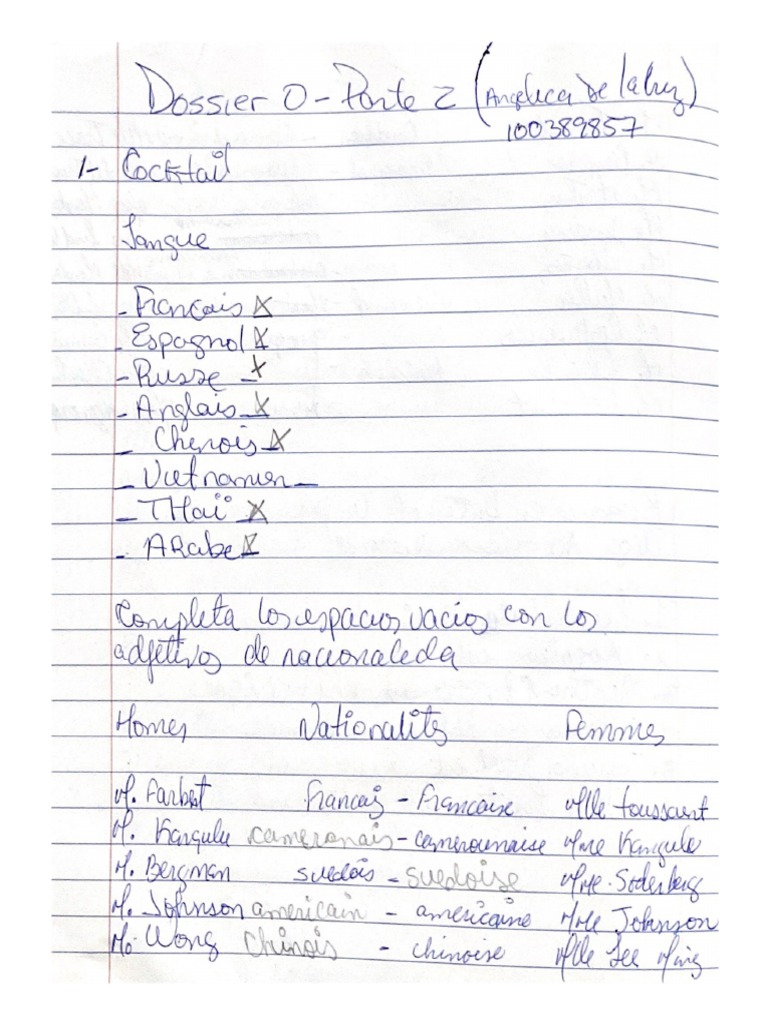 Dossier 0 - Parte 2 (Angelica De la Cruz)
100389857
1- Cocktail
Langue
- Francais X
- Espagnol X
- Russe - X
- Anglais X
- Chinois X
- Vietnamien -
- THaï X
- ARabe X
Completa los espacios vacios con los
adjetivos de nacionaleda
Homes Nationalités Femmes
M. Farbet francais - francaise Mlle toussaint
M. Kangulu cameronais - camerounaise Mme Kangulu
M. Bergman suedois - suedoise Mme. Soderberg
M. Johnson americain - américaine Mme Johnson
M. Wong Chinois - chinoise Mlle Lee Ming